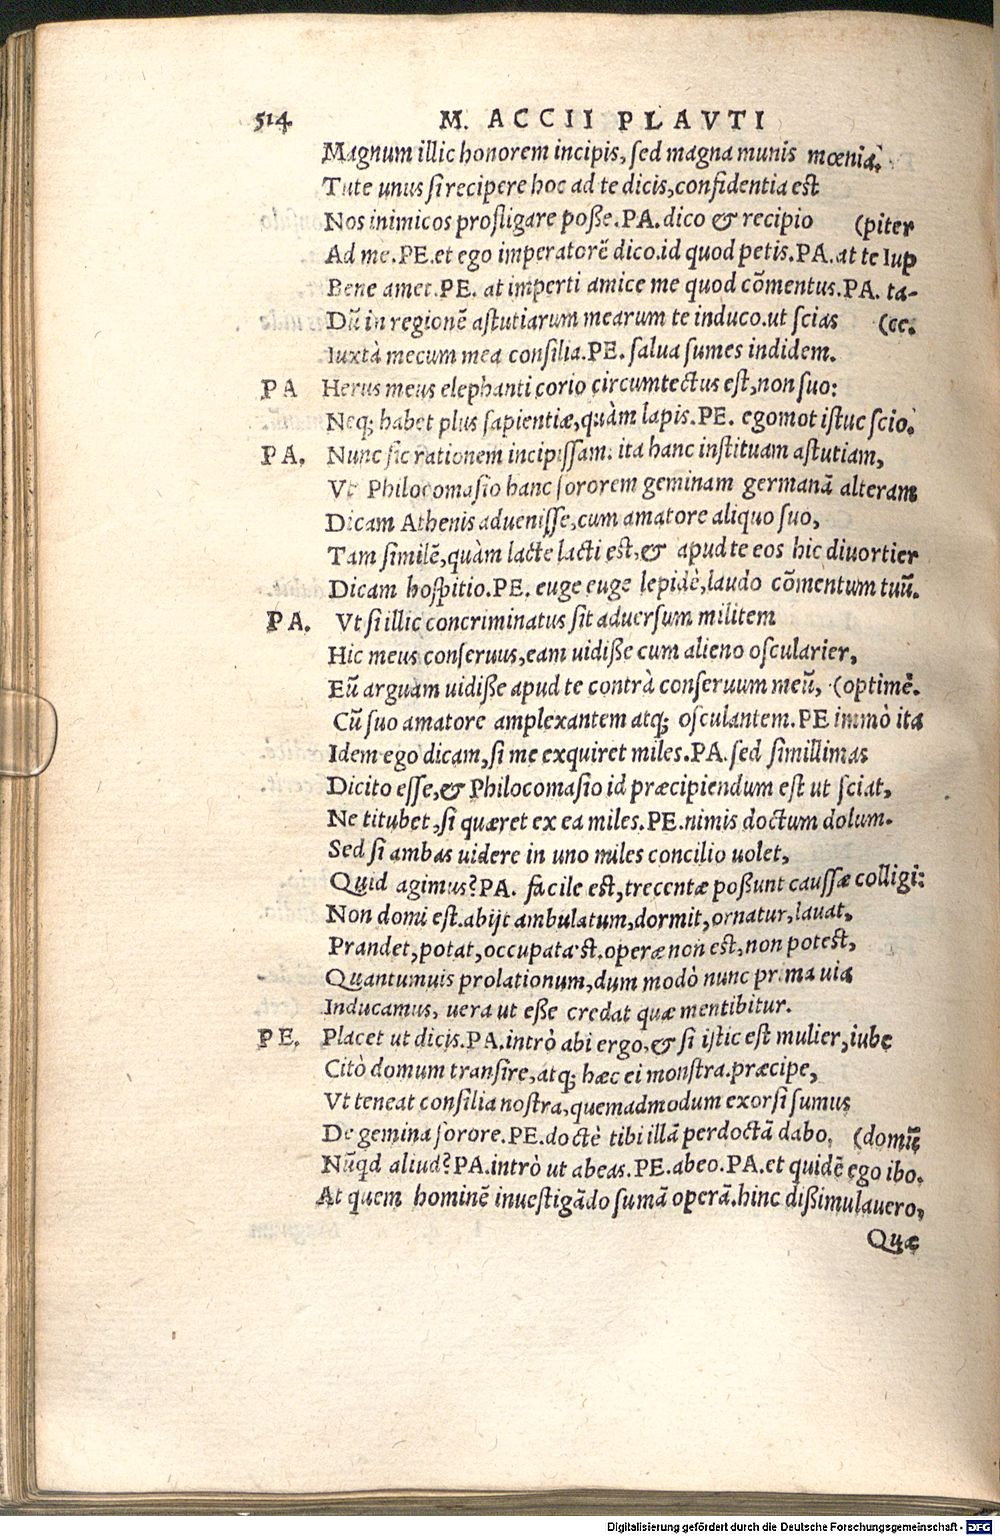 514 M. ACCII PLAVTI
Magnum illic honorem incipis, sed magna munis mœnia.
Tute unus si recipere hoc ad te dicis, confidentia est
Nos inimicos profligare poße. PA. dico & recipio (piter
Ad me. PE. et ego imperatorē dico. id quod petis. PA. at te Iup
Bene amet. PE. at imperti amice me quod cōmentus. PA. ta-
Dū in regionē astutiarum mearum te induco. ut scias (ce.
Iuxtà mecum mea consilia. PE. salua sumes indidem.
PA Herus meus elephanti corio circumtectus est, non suo:
Neq; habet plus sapientiæ, quàm lapis. PE. egomot istuc scio.
PA. Nunc sic rationem incipissam. ita hanc instituam astutiam,
Vt Philocomasio hanc sororem geminam germanā alteram
Dicam Athenis aduenisse, cum amatore aliquo suo,
Tam similē, quàm lacte lacti est, & apud te eos hic diuortier
Dicam hospitio. PE. euge euge lepidè, laudo cōmentum tuū.
PA. Vt si illic concriminatus sit aduersum militem
Hic meus conseruus, eam uidiße cum alieno oscularier,
Eū arguam uidiße apud te contrà conseruum meū, (optimè.
Cū suo amatore amplexantem atq; osculantem. PE immò ita
Idem ego dicam, si me exquiret miles. PA. sed simillimas
Dicito esse, & Philocomasio id præcipiendum est ut sciat,
Ne titubet, si quæret ex ea miles. PE. nimis doctum dolum.
Sed si ambas uidere in uno miles concilio uolet,
Quid agimus? PA. facile est, trecentæ poßunt caussæ colligi:
Non domi est. abijt ambulatum, dormit, ornatur, lauat,
Prandet, potat, occupata'st. operæ non est, non potest,
Quantumuis prolationum, dum modò nunc prima uia
Inducamus, uera ut eße credat quæ mentibitur.
PE. Placet ut dicis. PA. intrò abi ergo, & si istic est mulier, iube
Citò domum transire, atq; hæc ei monstra. præcipe,
Vt teneat consilia nostra, quemadmodum exorsi sumus
De gemina sorore. PE. doctè tibi illā perdoctā dabo. (domū
Nūqd aliud? PA. intrò ut abeas. PE. abeo. PA. et quidē ego ibo.
At quem hominē inuestigādo sumā operā. hinc dißimulauero,
Quæ
Digitalisierung gefördert durch die Deutsche Forschungsgemeinschaft - DFG